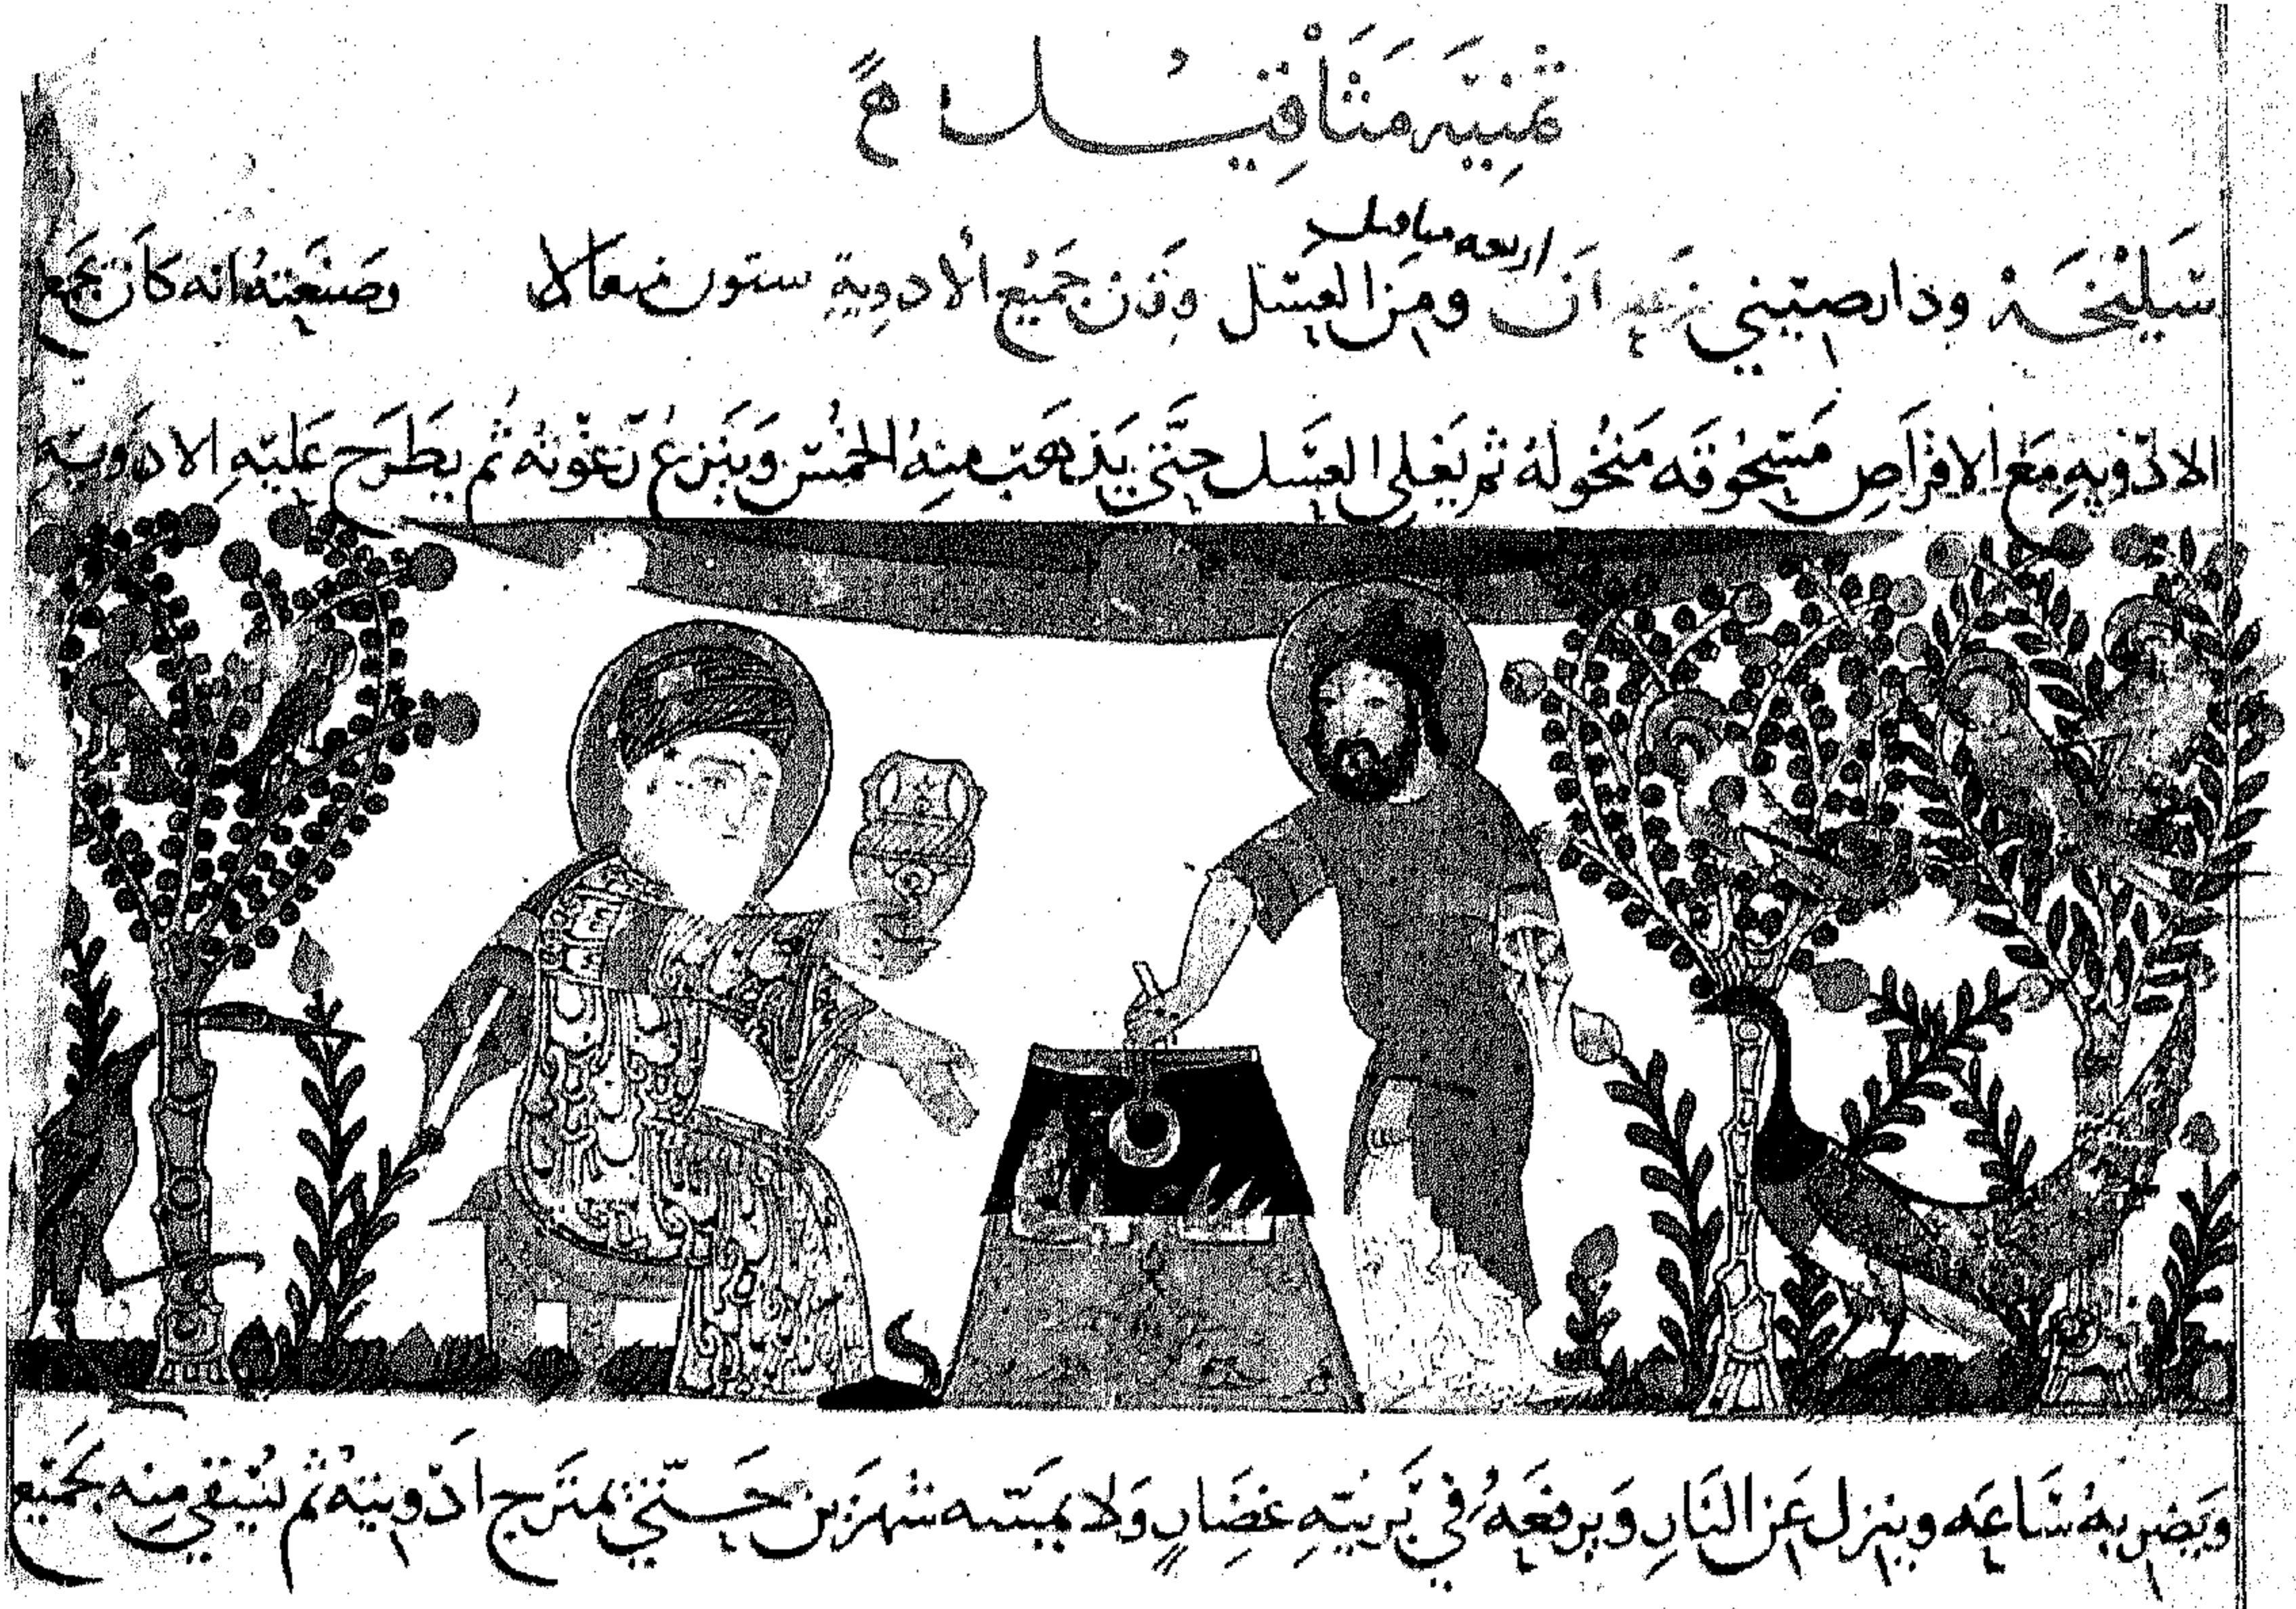 ثمنيه مثاقيل
اربعه مثاقيل
سليخة ودارصيني زعفران ومن العسل وزن جميع الادوية ستون مثقالا وصنعته انه كان يجمع
الادويه مع الاقراص مسحوقه منخوله ثم يغلي العسل حتى يذهب منه الخمس وينزع رغوته ثم يطرح عليه الادويه
ويضربه ساعه وينزل عن النار ويرفعه في برنيه غضار ولا يمسه شهرين حتى يمتزج ادويته ثم يسقي منه بجميع